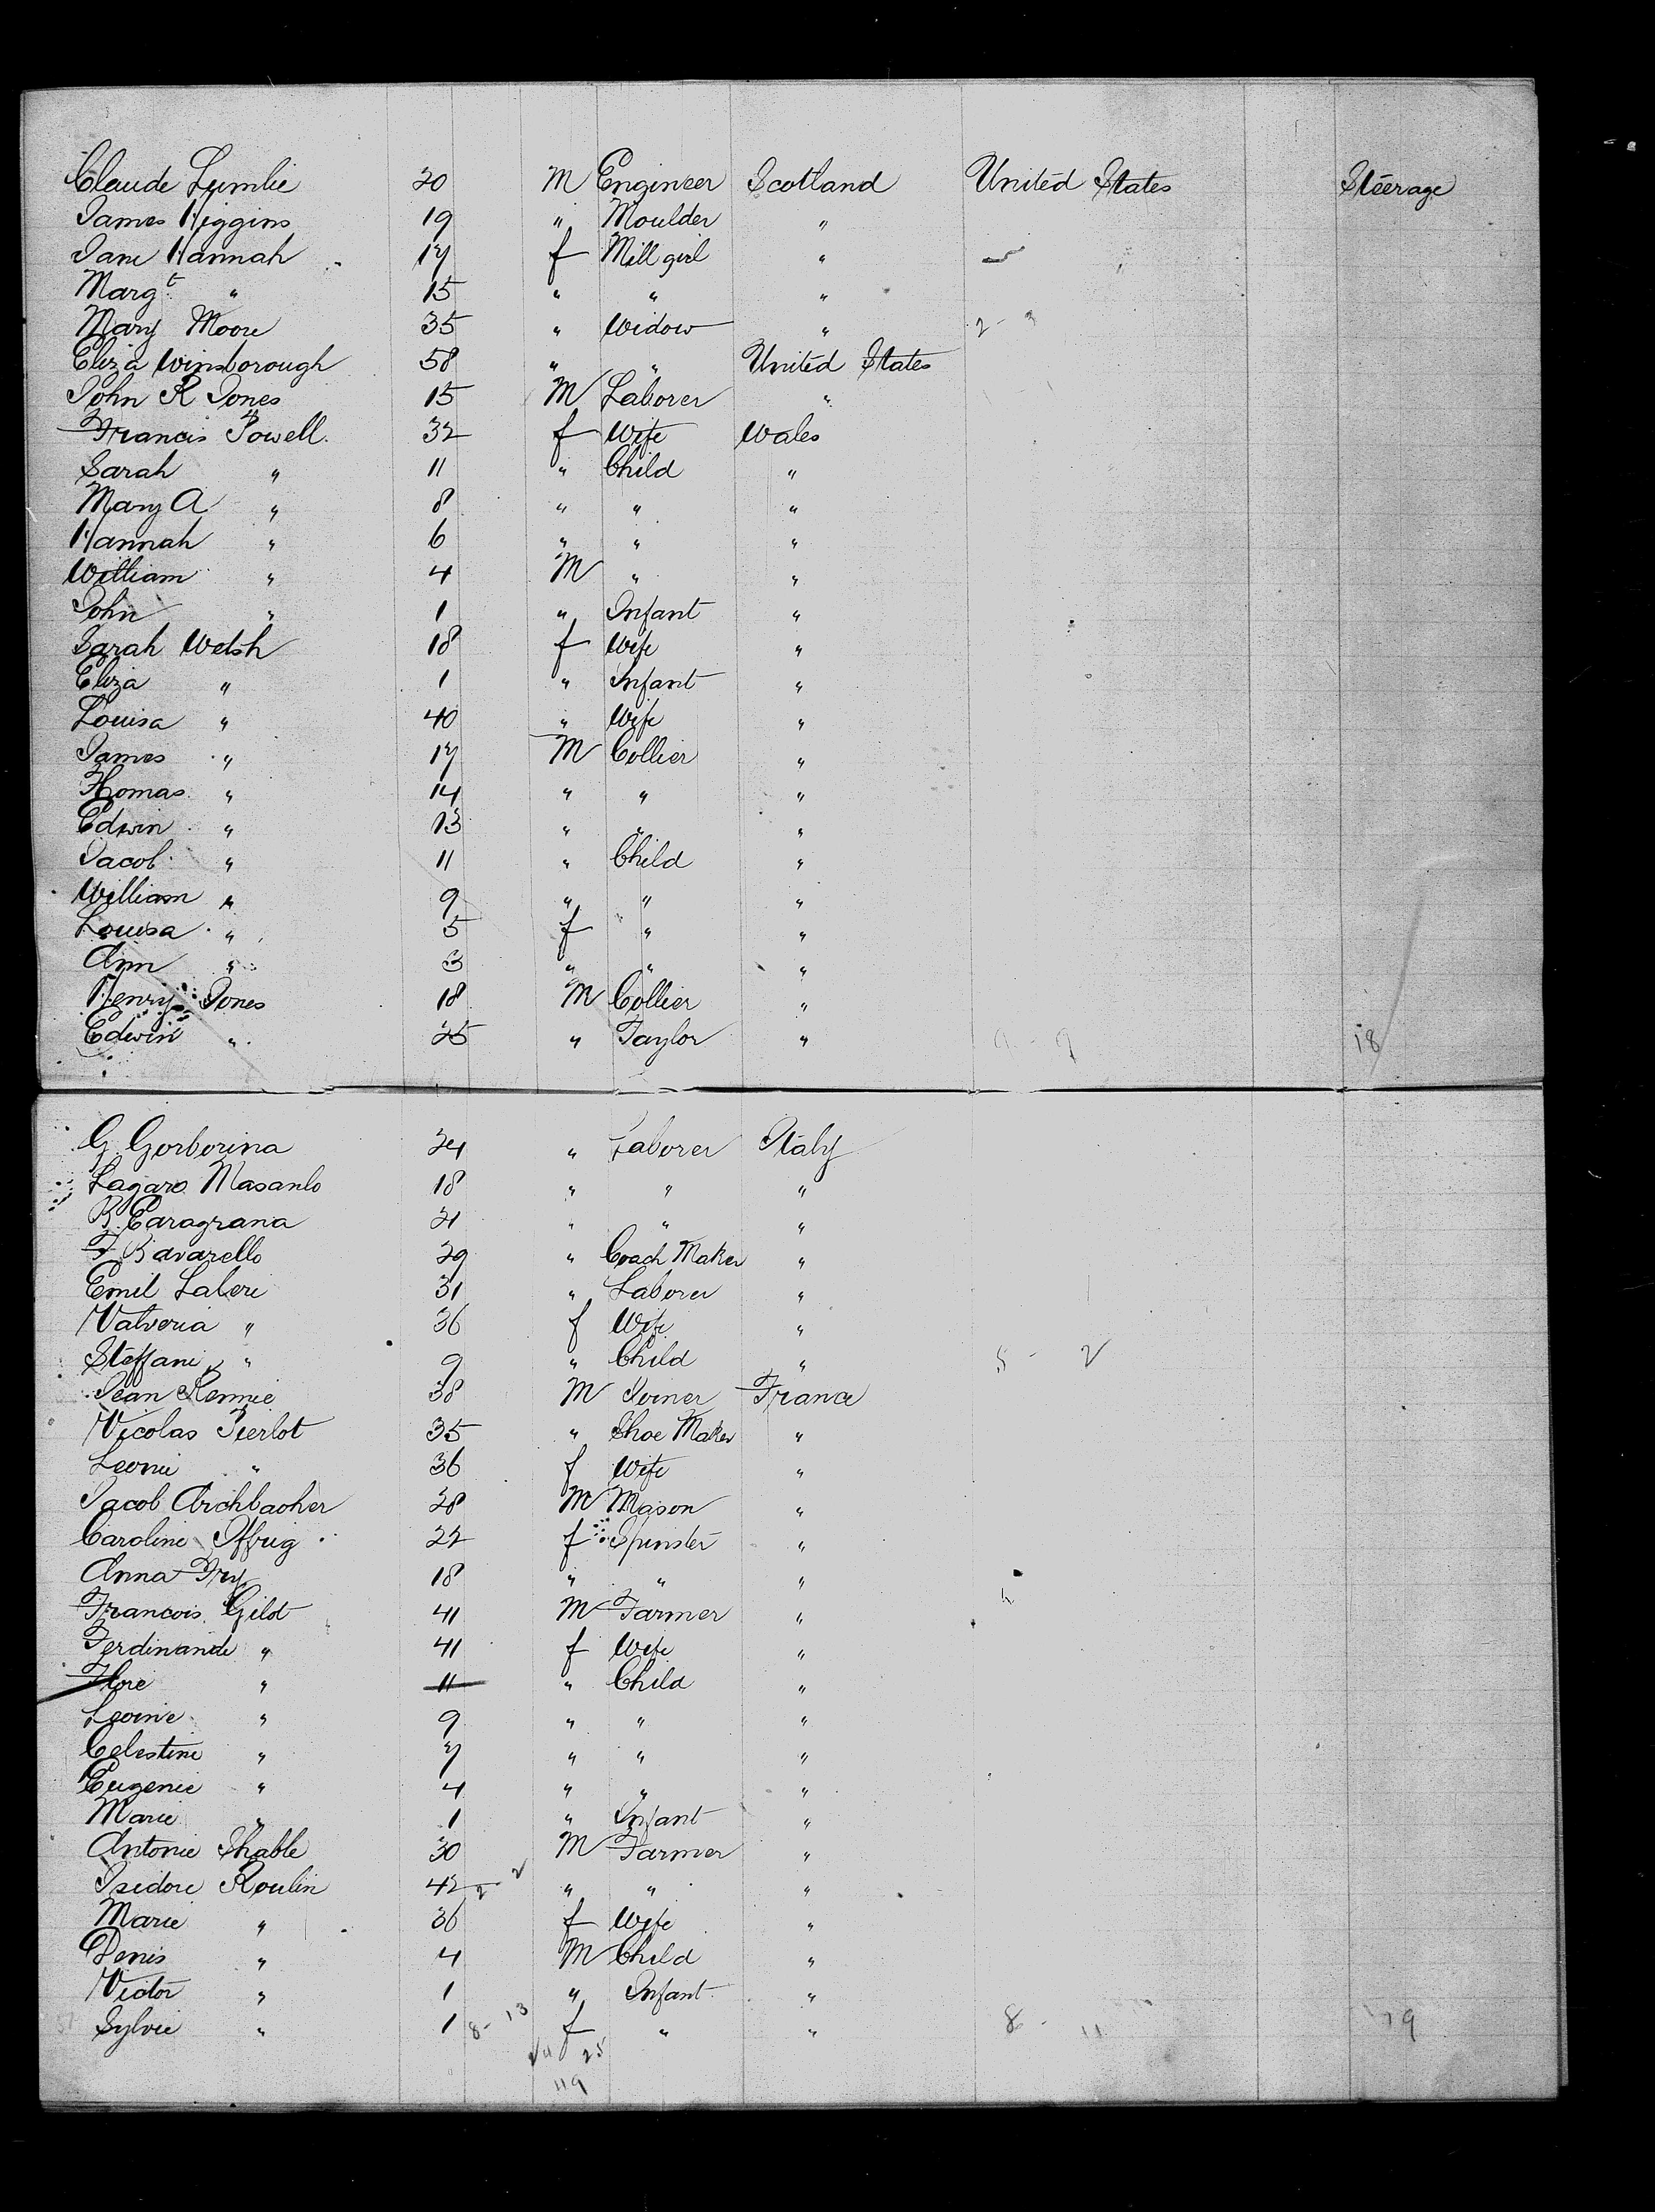 Claude Lumlie 20 M Engineer Scotland United States Steerage
James Higgins 19 " Moulder "
Jane Hannah 17 f Mill girl "
Margt " 15 " " "
Mary Moore 35 " Widow " 2 - 3
Eliza Winsborough 58 " " United States
John R Jones 15 M Laborer "
Francis Powell 32 f Wife Wales
Sarah " 11 " Child "
Mary A " 8 " " "
Hannah " 6 " " "
William " 4 M " "
John " 1 " Infant "
Sarah Welsh 18 f Wife "
Eliza " 1 " Infant "
Louisa " 40 " Wife "
James " 17 M Collier "
Thomas " 14 " " "
Edwin " 13 " " "
Jacob " 11 " Child "
William " 9 " " "
Louisa " 5 f " "
Ann " 3 " " "
Henry Jones 18 M Collier "
Edwin " 25 " Taylor " 9 - 9 18
G. Gorborina 24 " Laborer Italy
Lagaro Masanlo 18 " " "
B. Caragrana 21 " " "
F Bavarello 29 " Coach Maker "
Emil Laleri 31 " Laborer "
Valveria " 36 f Wife "
Steffani " 9 " Child " 5 - 2
Jean Rennie 38 M Joiner France
Nicolas Pierlot 35 " Shoe Maker "
Leonie " 36 f Wife "
Jacob Archbacher 28 M Mason "
Caroline Offrig 22 f Spinster "
Anna Fry 18 " " "
Francois Gilot 41 M Farmer "
Ferdinande " 41 f Wife "
Flore " 11 " Child "
Leonie " 9 " " "
Celestine " 7 " " "
Eugenie " 4 " " "
Marie " 1 " Infant "
Antonie Shable 30 M Farmer "
Isidore Roulin 42 2 - 2 " " "
Marie " 36 f Wife "
Denis " 4 M Child "
Victor " 1 " Infant "
Sylvie " 1 8 - 13 f " " 8 - 11 19
24 25
119